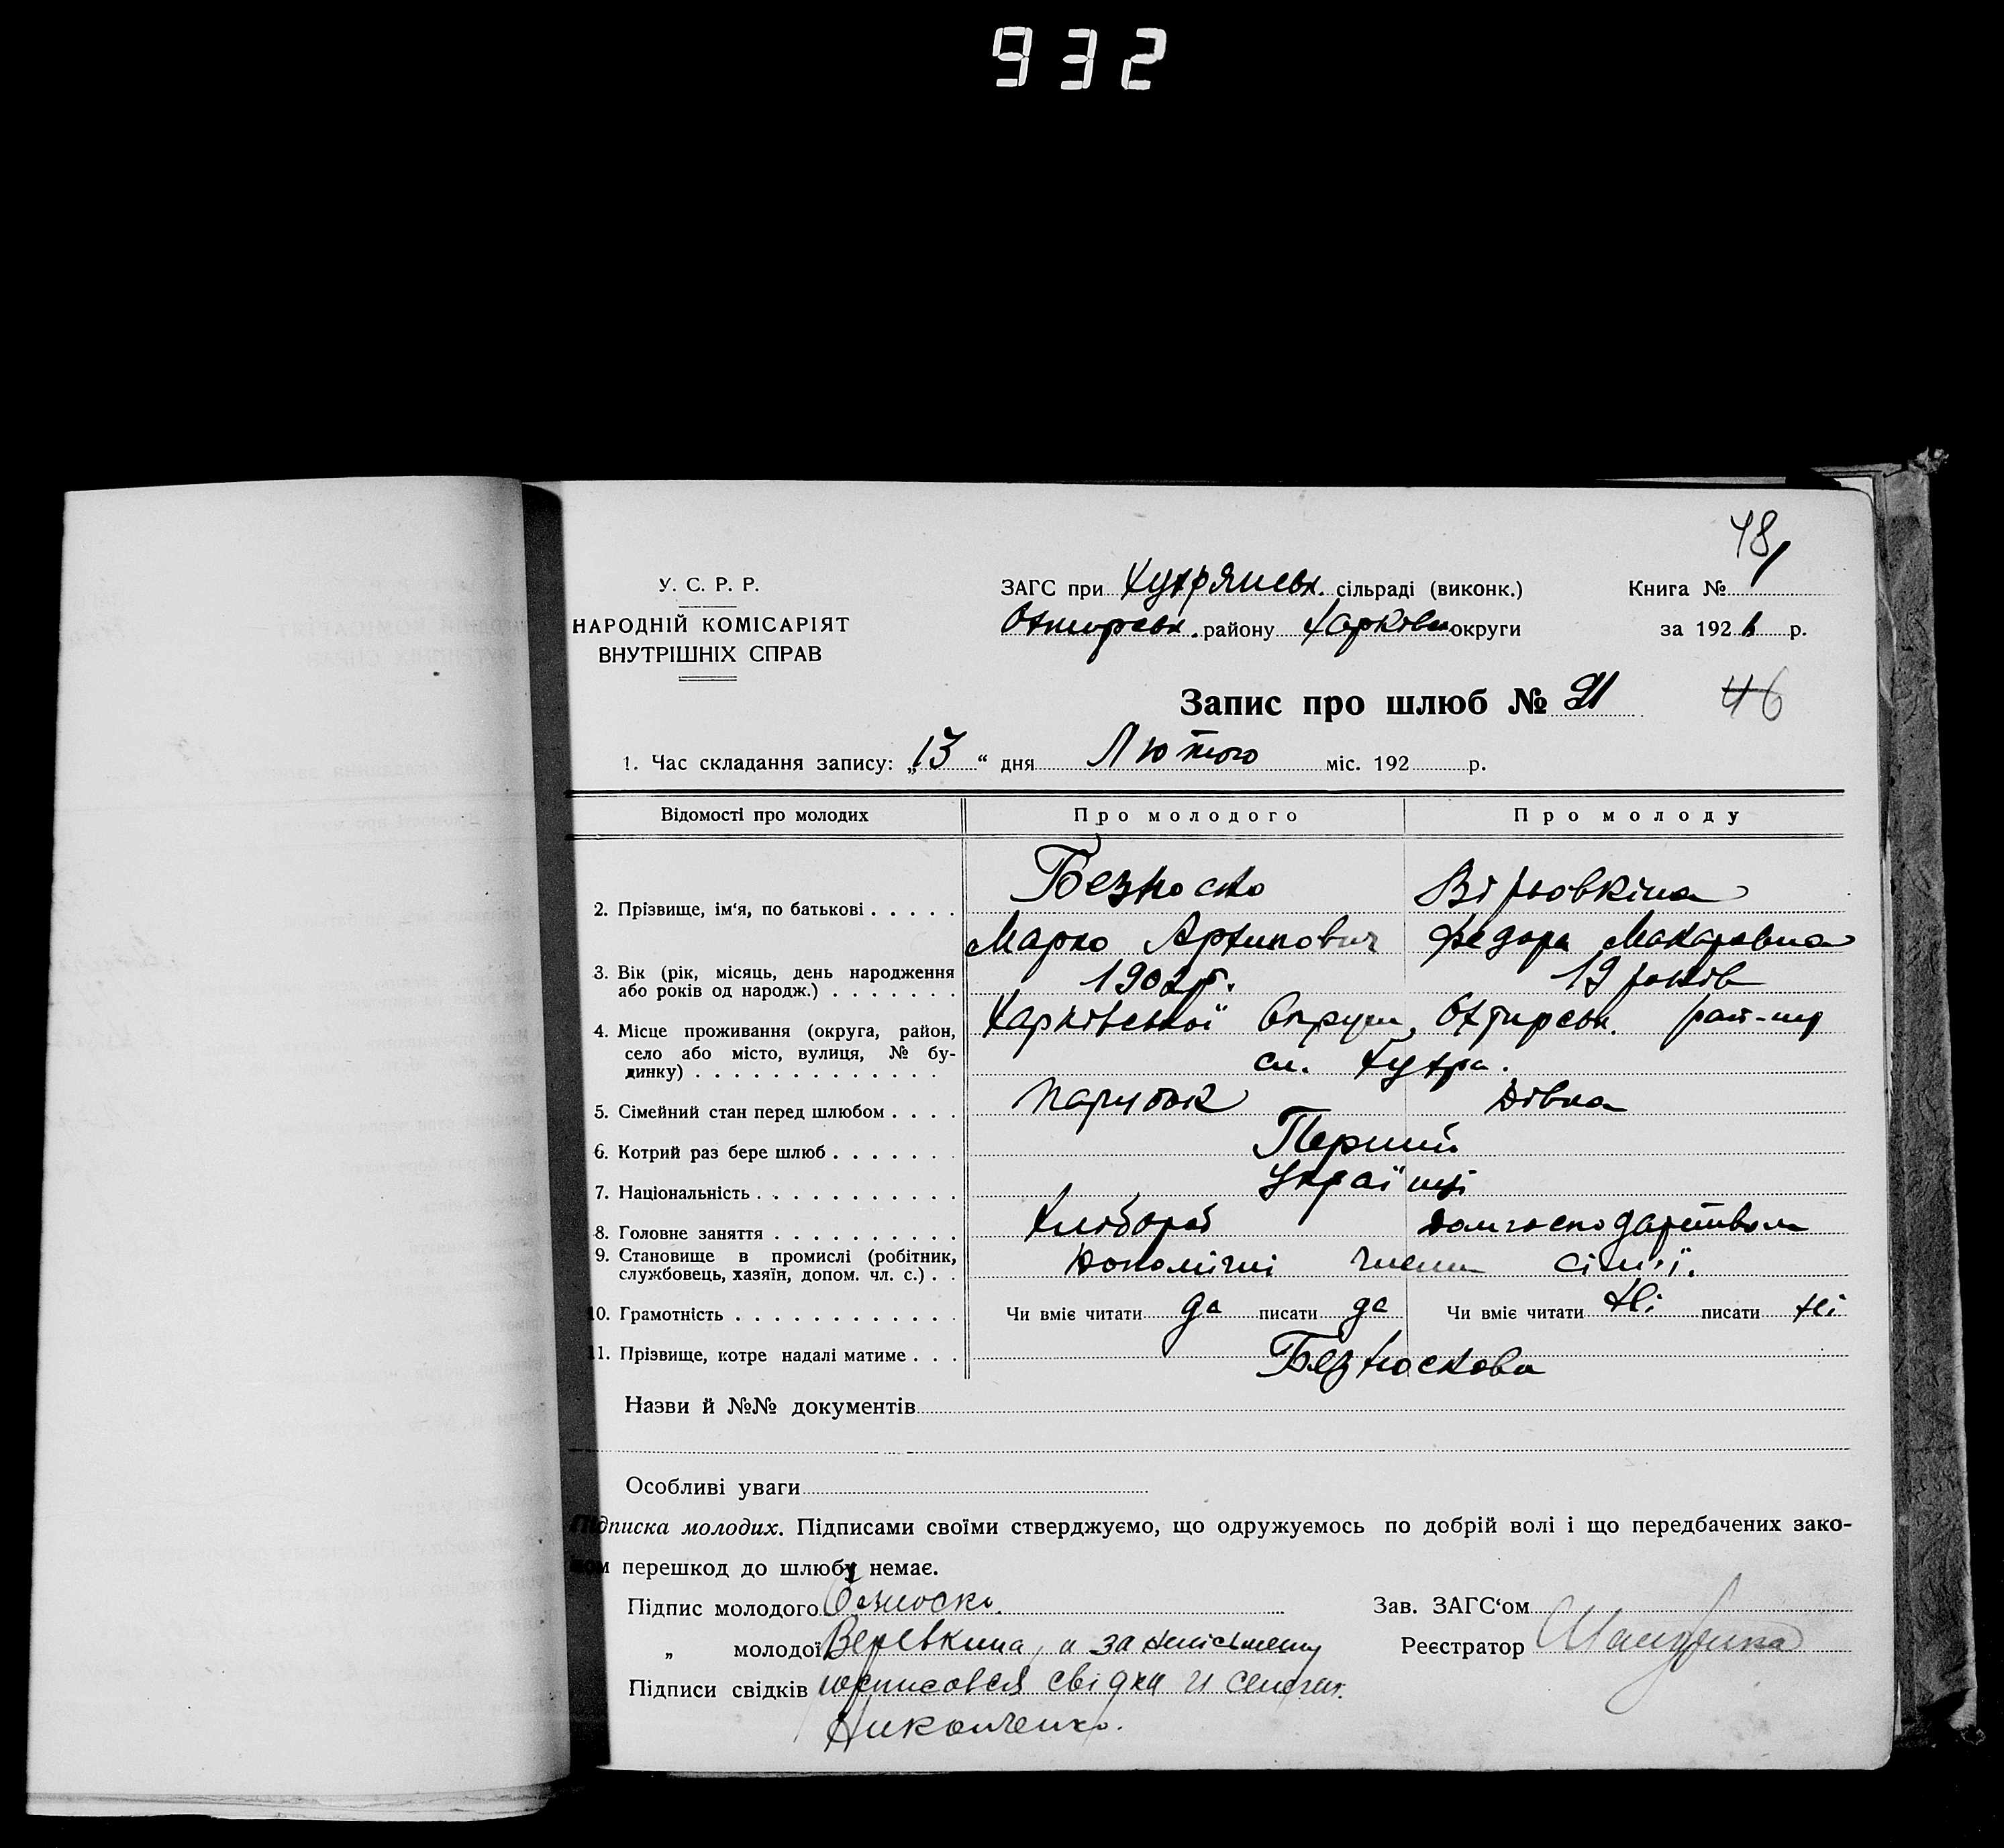 932
48
У. С. Р. Р.
НАРОДНІЙ КОМІСАРІЯТ
ВНУТРІШНІХ СПРАВ
ЗАГС при Хухрянськ. сільраді (виконк.)
Охтирськ. району Харківськ округи
Книга № 1
за 1926 р.
Запис про шлюб № 21
46
1. Час складання запису: „13“ дня Лютого міс. 192 р.
Відомості про молодих
Про молодого
Про молоду
2. Прізвище, ім'я, по батькові
Безноско
Вірьовкіна
Марко Архипович
Федора Макаровна
3. Вік (рік, місяць, день народження
або років од народж.)
1902 р.
19 років
4. Місце проживання (округа, район,
село або місто, вулиця, № бу-
динку)
Харківської Округи, Охтирськ. рай-ну
сл. Хухра.
5. Сімейний стан перед шлюбом
Парубок
Дівка
6. Котрий раз бере шлюб
Перший
7. Національність
Українці
8. Головне заняття
Хлібороб
Домгосподарством
9. Становище в промислі (робітник,
службовець, хазяїн, допом. чл. с.)
Допомічні члени сім'ї.
10. Грамотність
Чи вміє читати да писати да
Чи вміє читати Ні писати Ні
11. Прізвище, котре надалі матиме
Безноскова
Назви й №№ документів
Особливі уваги
Підписка молодих. Підписами своїми стверджуємо, що одружуємось по добрій волі і що передбачених зако-
ном перешкод до шлюбу немає.
Підпис молодого Безноско.
„ молодої Веревкина, а за неписьмену
Підписи свідків росписовся свідка и
Николченко.
Зав. ЗАГС'ом
Реєстратор